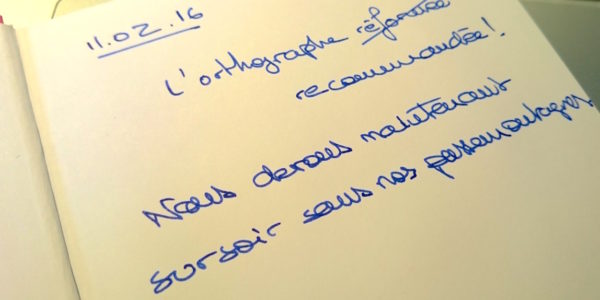 11.02.16
L'orthographe réformée
recommandée!
Nous devons maintenant
sursoir sous nos passemontagnes